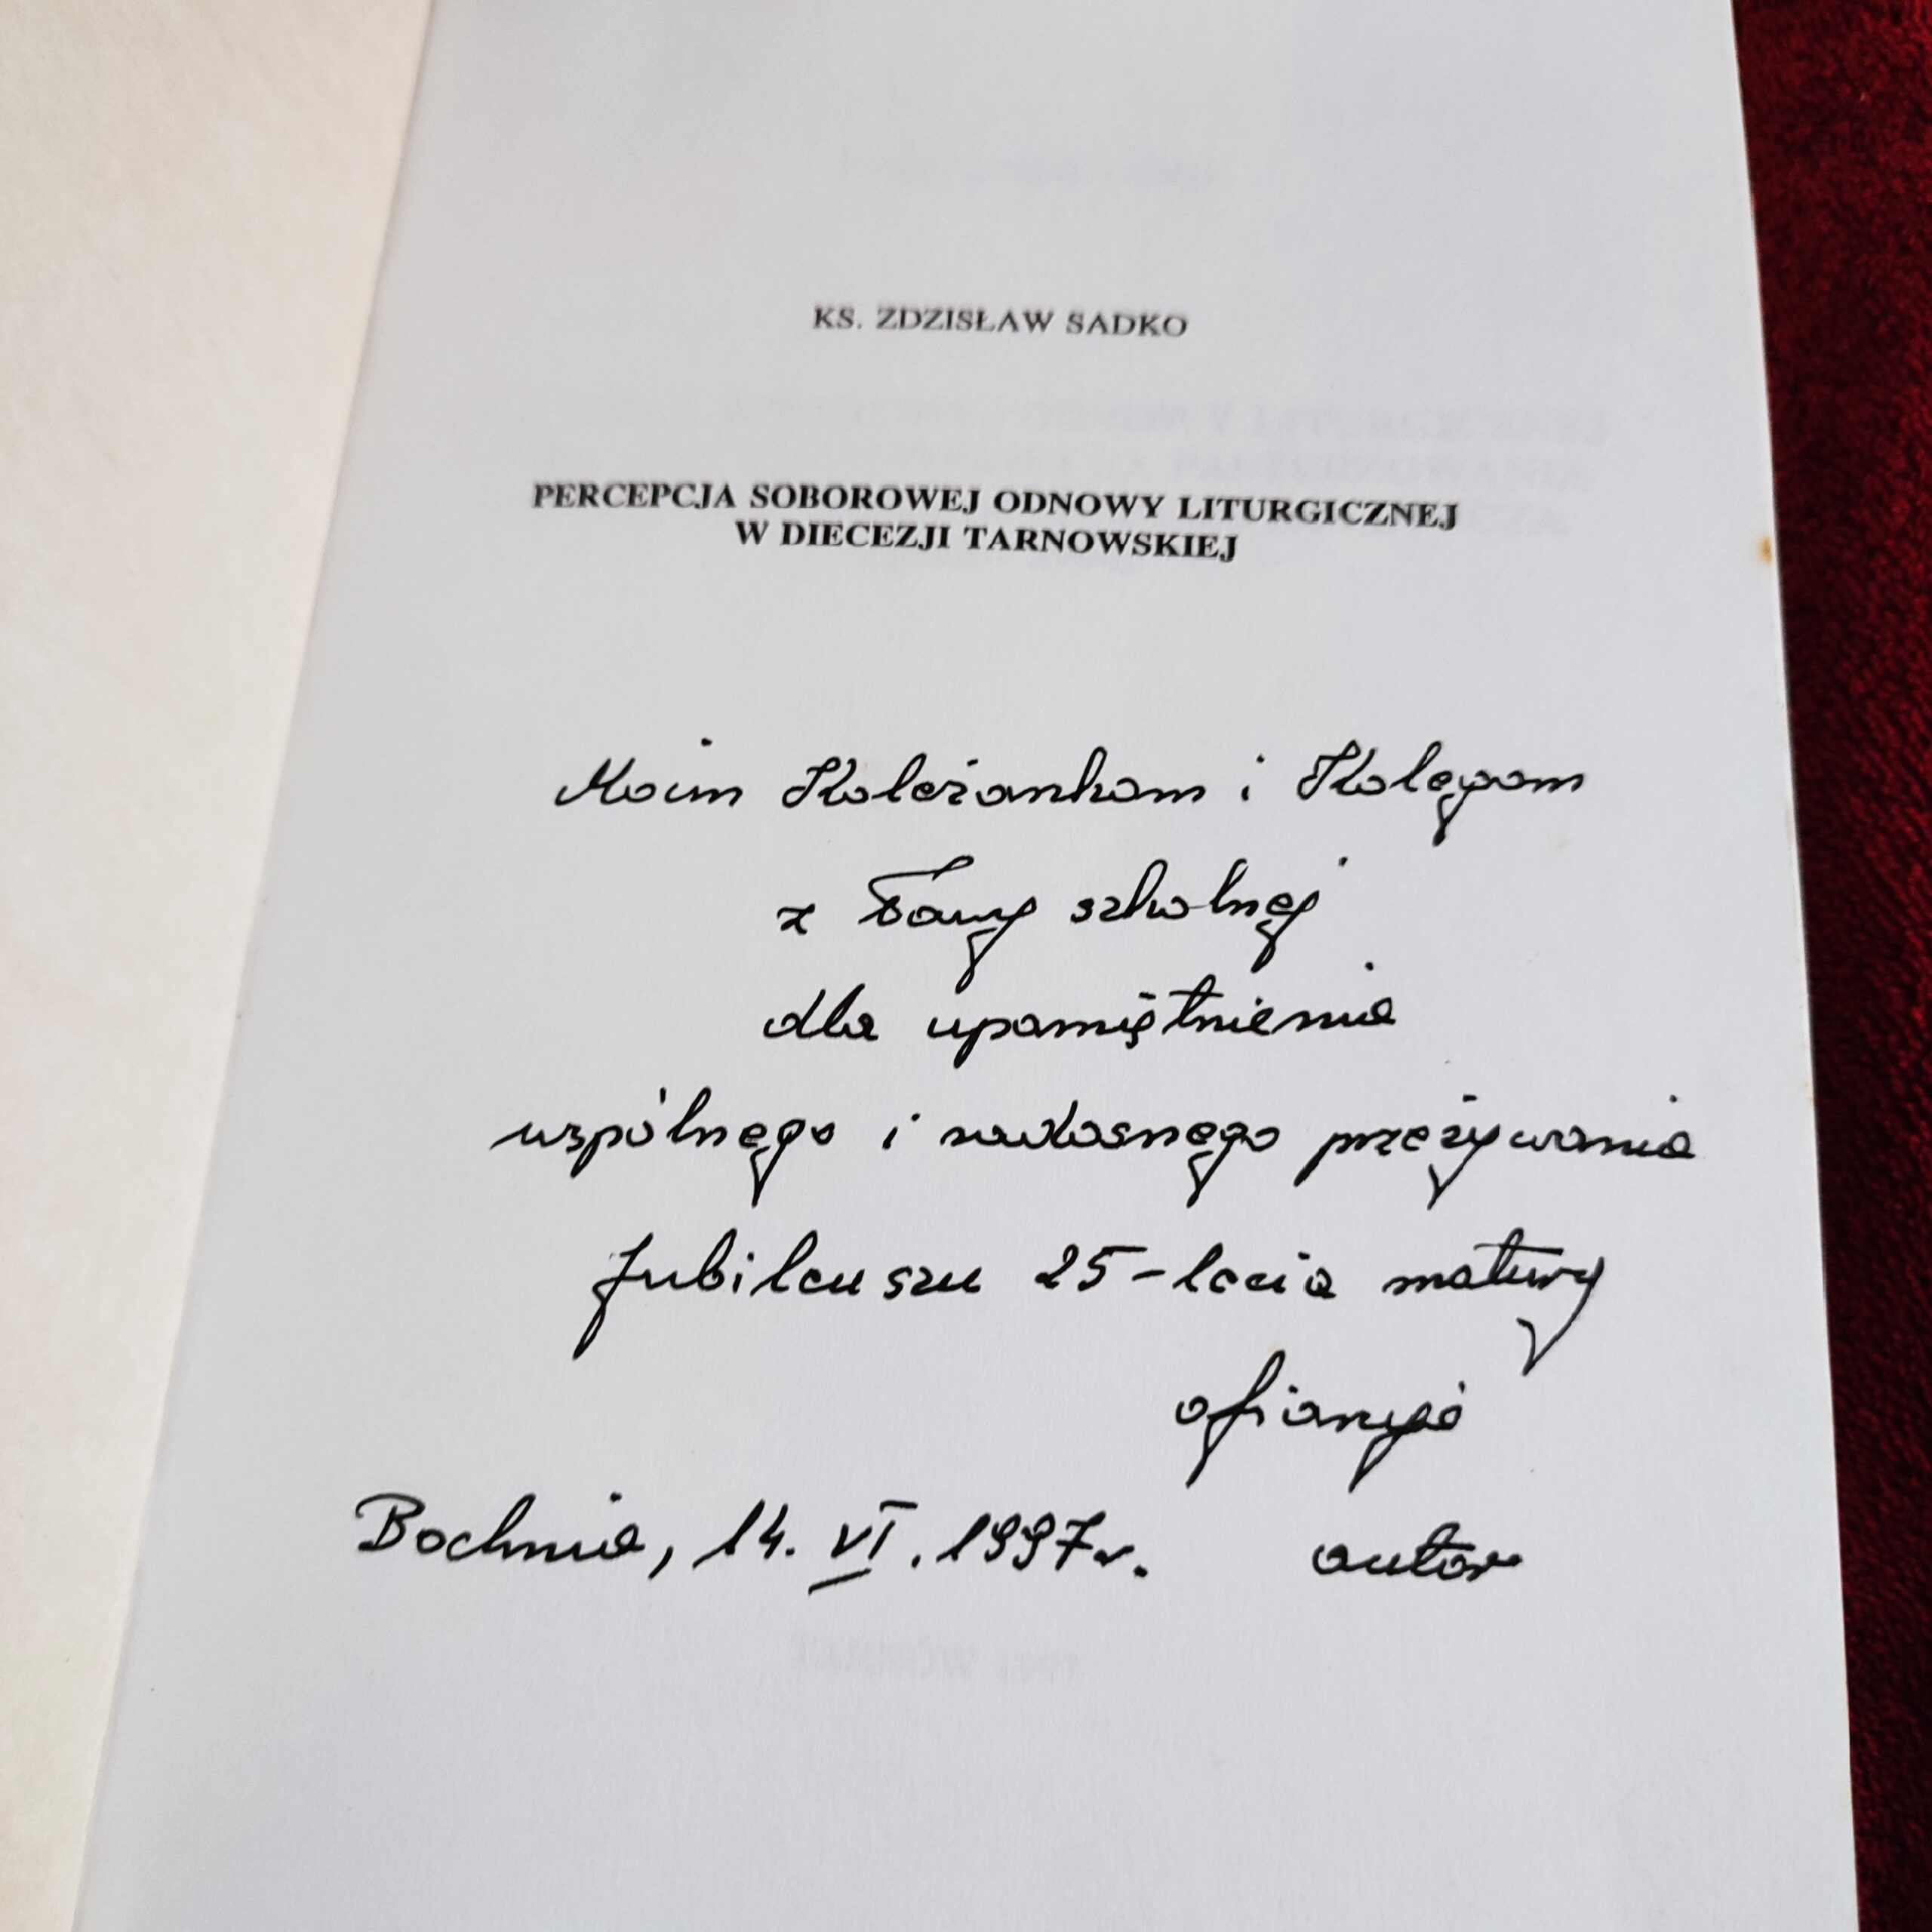 KS. ZDZISŁAW SADKO
PERCEPCJA SOBOROWEJ ODNOWY LITURGICZNEJ
W DIECEZJI TARNOWSKIEJ
Moim Koleżankom i Kolegom
z Ławy szkolnej
dla upamiętnienia
wspólnego i radosnego przeżywania
Jubileuszu 25-lecia matury
ofiaruje
Bochnia, 14. VI. 1997 r. autor